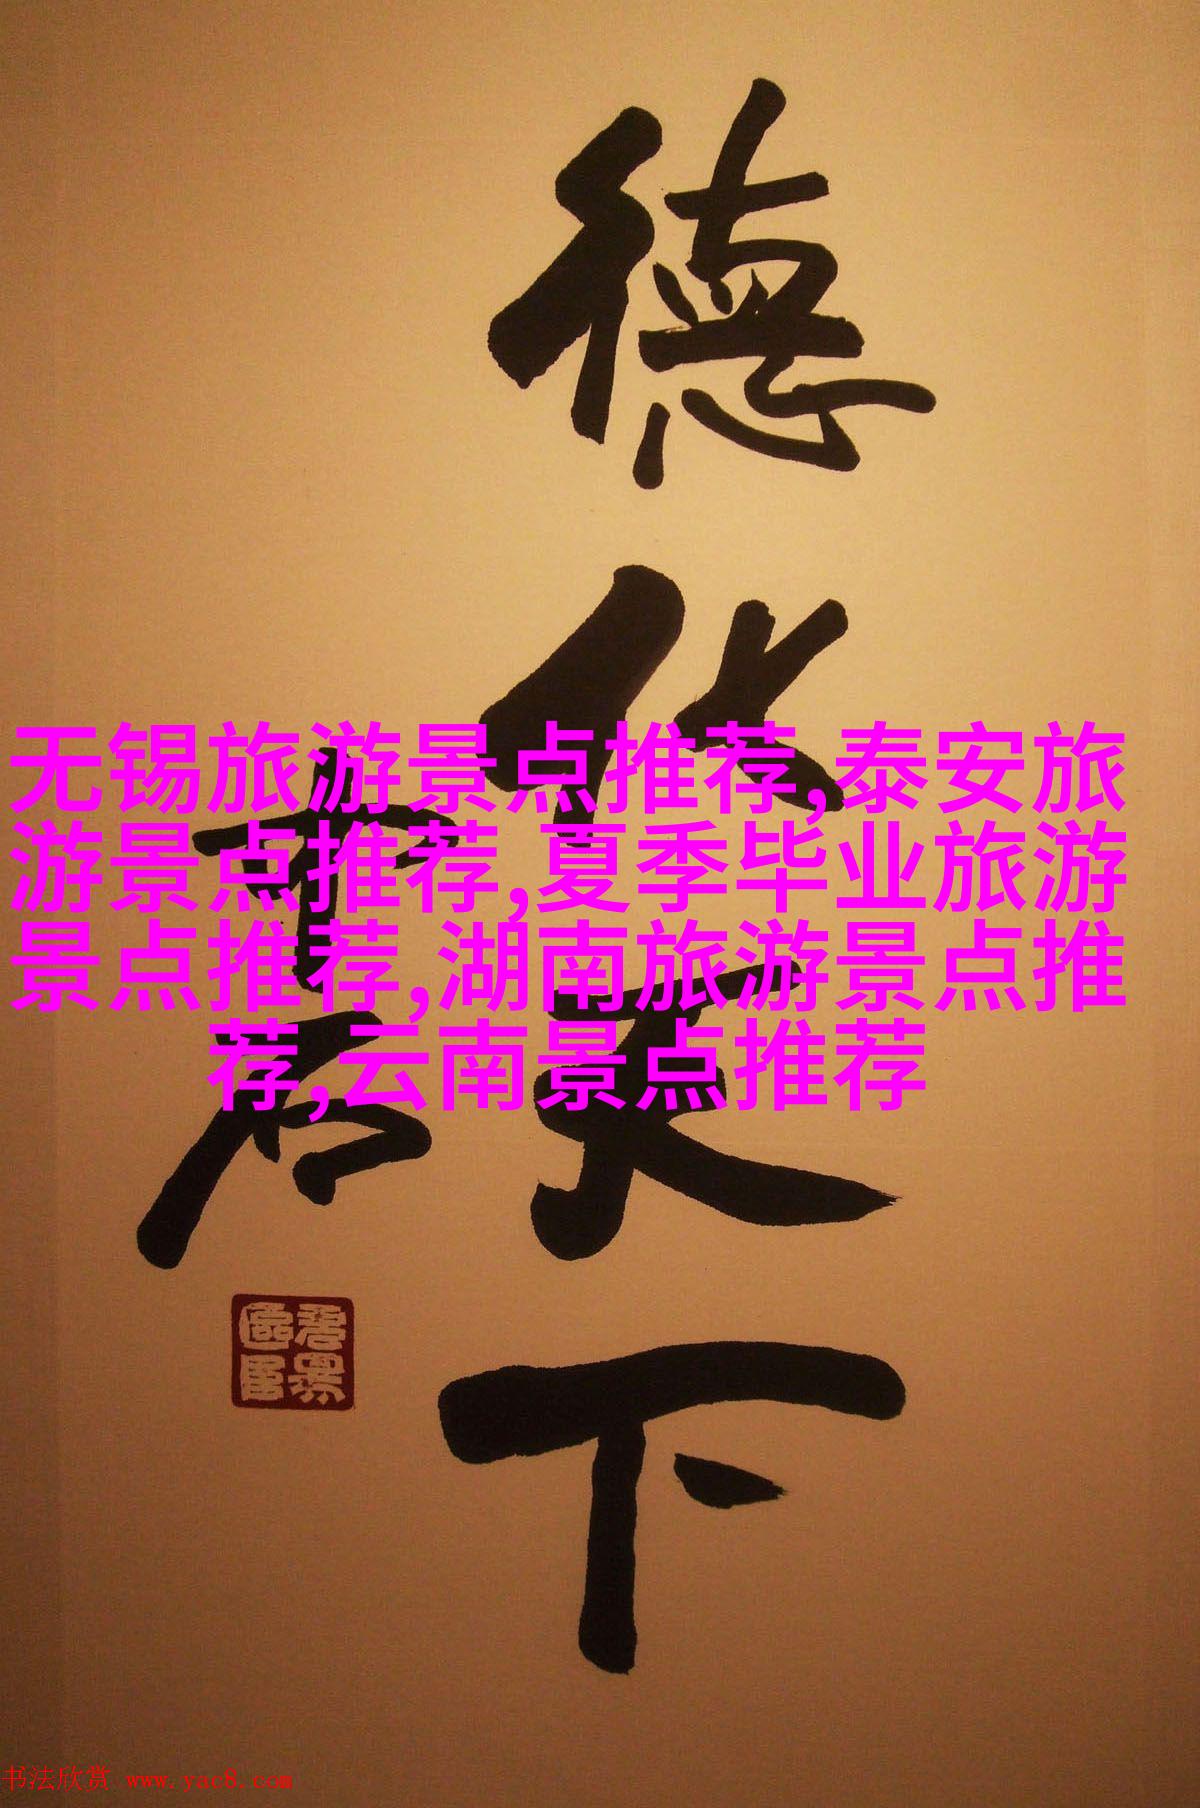 德化天下
无锡旅游景点推荐,泰安旅
游景点推荐,夏季毕业旅游
景点推荐,湖南旅游景点推
荐,云南景点推荐
书法欣赏 www.yac8.com